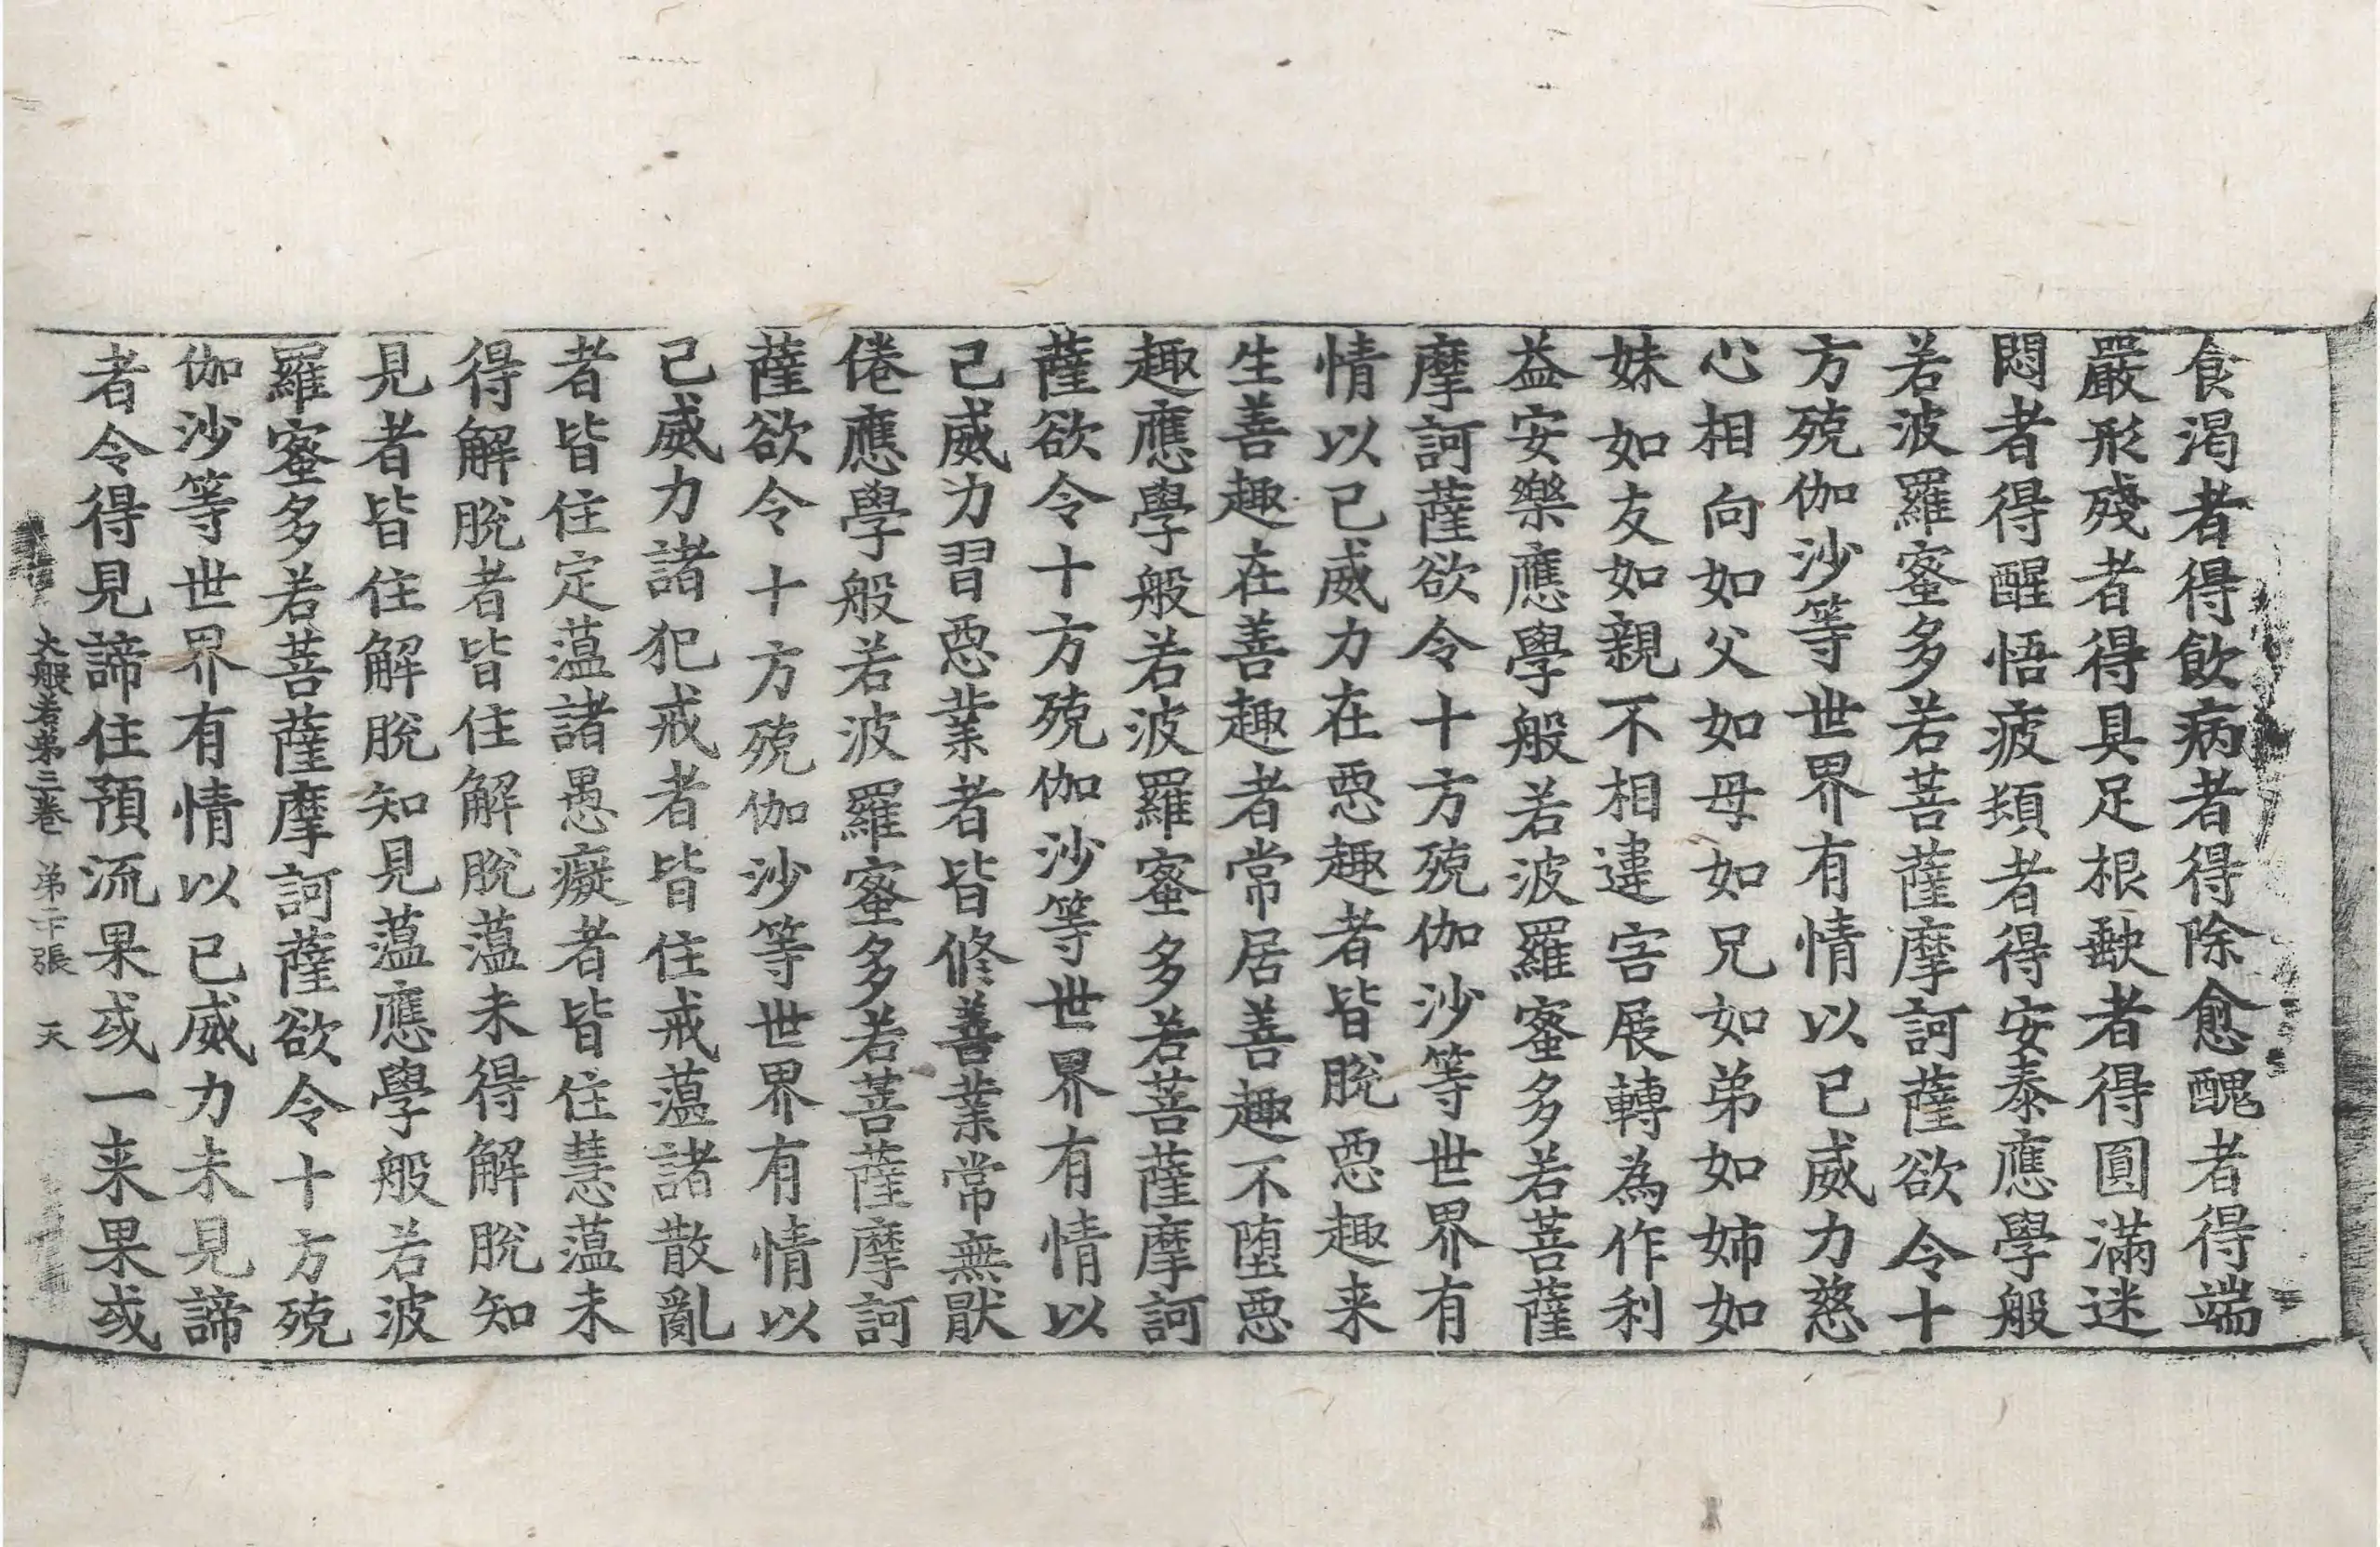 食渴者得飲病者得除愈醜者得端
嚴形殘者得具足根𡙇者得圓滿迷
悶者得醒悟疲頓者得安泰應學般
若波羅蜜多若菩薩摩訶薩欲令十
方殑伽沙等世界有情以己威力慈
心相向如父如母如兄如弟如姉如
妹如友如親不相違害展轉為作利
益安樂應學般若波羅蜜多若菩薩
摩訶薩欲令十方殑伽沙等世界有
情以己威力在惡趣者皆脫惡趣来
生善趣在善趣者常居善趣不墮惡
趣應學般若波羅蜜多若菩薩摩訶
薩欲令十方殑伽沙等世界有情以
己威力習惡業者皆修善業常無猒
倦應學般若波羅蜜多若菩薩摩訶
薩欲令十方殑伽沙等世界有情以
己威力諸犯戒者皆住戒蘊諸散亂
者皆住定蘊諸愚癡者皆住慧蘊未
得解脫者皆住解脫蘊未得解脫知
見者皆住解脫知見蘊應學般若波
羅蜜多若菩薩摩訶薩欲令十方殑
伽沙等世界有情以己威力未見諦
者令得見諦住預流果或一来果或
大般若第三卷 第二十張 天